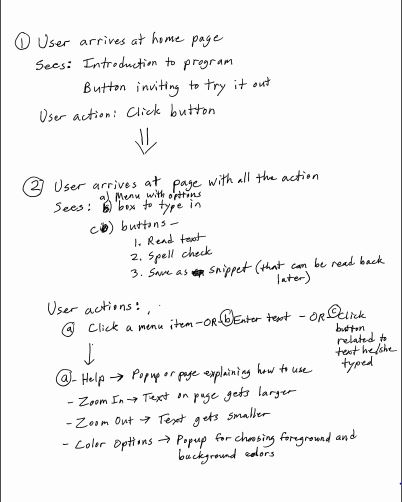 ① User arrives at home page
Sees: Introduction to program
Button inviting to try it out
User action: Click button
② User arrives at page with all the action
a) Menu with options
Sees: b) box to type in
c) buttons –
1. Read text
2. Spell check
3. Save as snippet (that can be read back
later)
User actions:
ⓐ Click a menu item – OR – ⓑ Enter text – OR – ⓒ Click
button
related to
text he/she
typed
ⓐ – Help → Popup or page explaining how to use
– Zoom In → Text on page gets larger
– Zoom Out → Text gets smaller
– Color Options → Popup for choosing foreground and
background colors